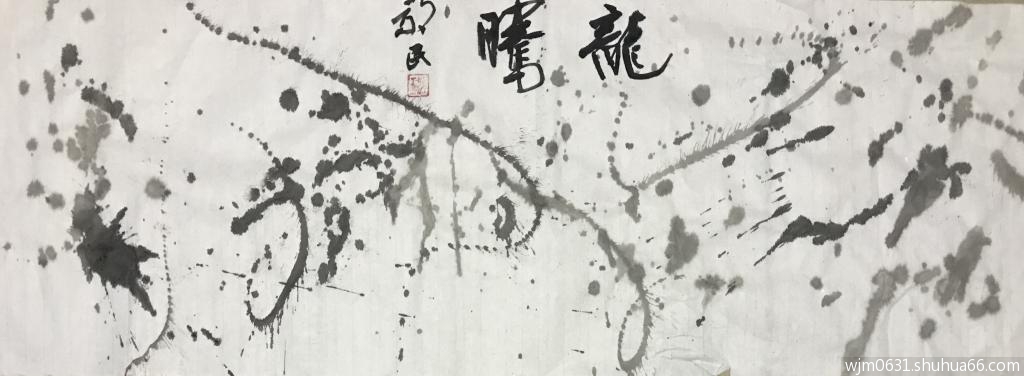 龍騰
wjm0631.shuhua66.com